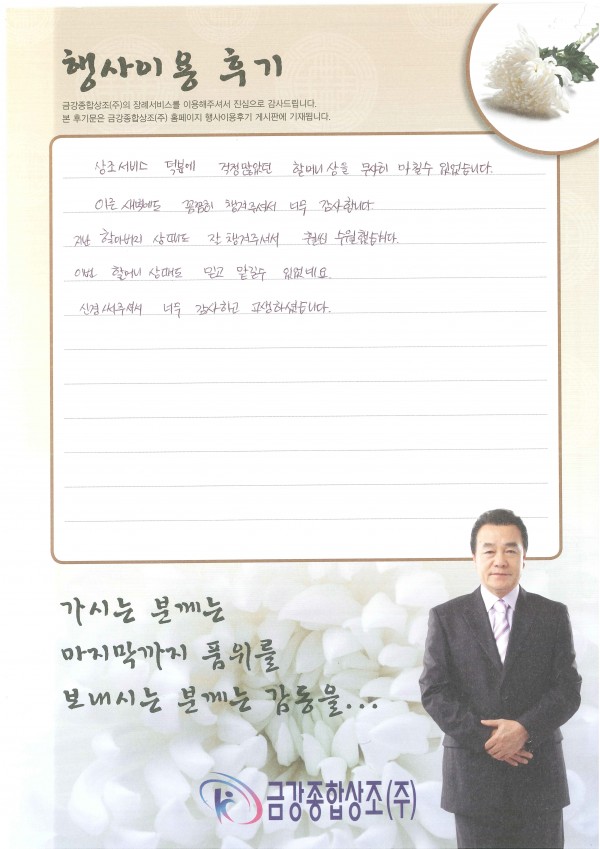 행사이용 후기
금강종합상조(주)의 장례서비스를 이용해주셔서 진심으로 감사드립니다.
본 후기문은 금강종합상조(주) 홈페이지 행사이용후기 게시판에 기재됩니다.
상조서비스 덕분에 걱정많았던 할머니상을 무사히 마칠수 있었습니다.
이른 새벽에도 꼼꼼히 챙겨주셔서 너무 감사합니다.
지난 할아버지 상때도 잘 챙겨주셔서 훨씬 수월했습니다.
이번 할머니 상때도 믿고 맡길수 있었네요.
신경써주셔서 너무 감사하고 고생하셨습니다.
가시는 분께는
마지막까지 품위를
보내시는 분께는 감동을...
금강종합상조(주)